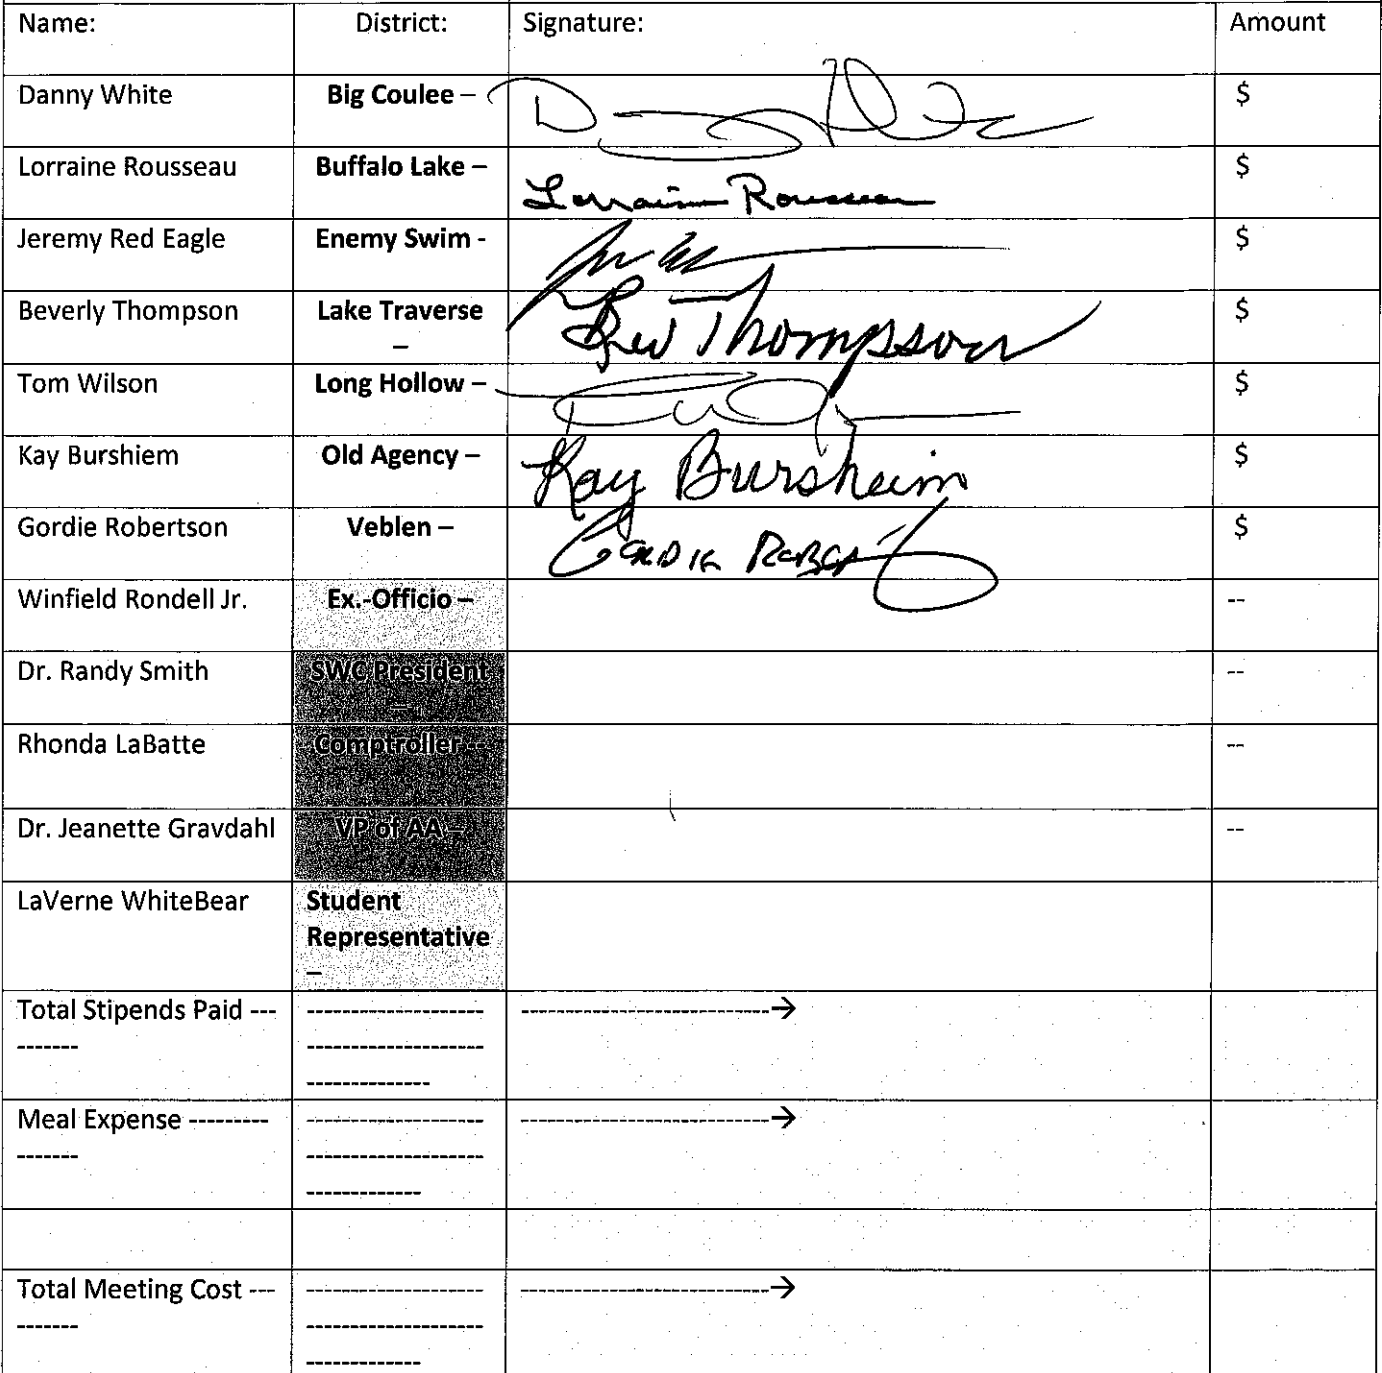 Name: District: Signature: Amount
Danny White Big Coulee – $
Lorraine Rousseau Buffalo Lake – Lorraine Rousseau $
Jeremy Red Eagle Enemy Swim - $
Beverly Thompson Lake Traverse Bev Thompson $
–
Tom Wilson Long Hollow – $
Kay Burshiem Old Agency – Kay Bursheim $
Gordie Robertson Veblen – $
Winfield Rondell Jr. Ex.-Officio – --
Dr. Randy Smith SWC President --
–
Rhonda LaBatte Comptroller -- --
Dr. Jeanette Gravdahl VP of AA – --
LaVerne WhiteBear Student
Representative
–
Total Stipends Paid --- -------------------- ----------------------------→
------- --------------------
--------------
Meal Expense --------- -------------------- ----------------------------→
------- --------------------
-------------
Total Meeting Cost --- -------------------- ----------------------------→
------- --------------------
-------------